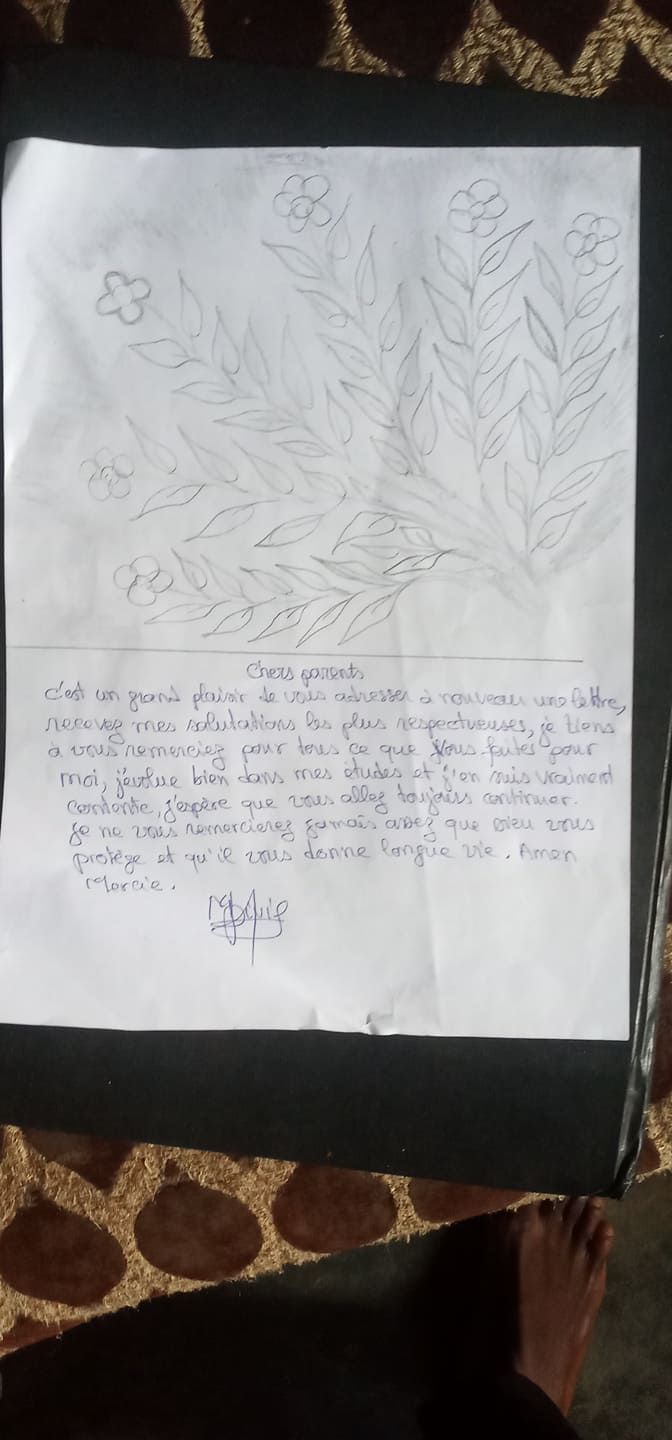 Chers parents
c'est un grand plaisir de vous adresser à nouveau une lettre,
recevez mes salutations les plus respectueuses, je tiens
à vous remerciez pour tous ce que vous faites pour
moi, j'évolue bien dans mes études et j'en suis vraiment
contente, j'espère que vous allez toujours continuer.
je ne vous remercierez jamais assez que Dieu vous
protège et qu'il vous donne longue vie. Amen
Mercie.